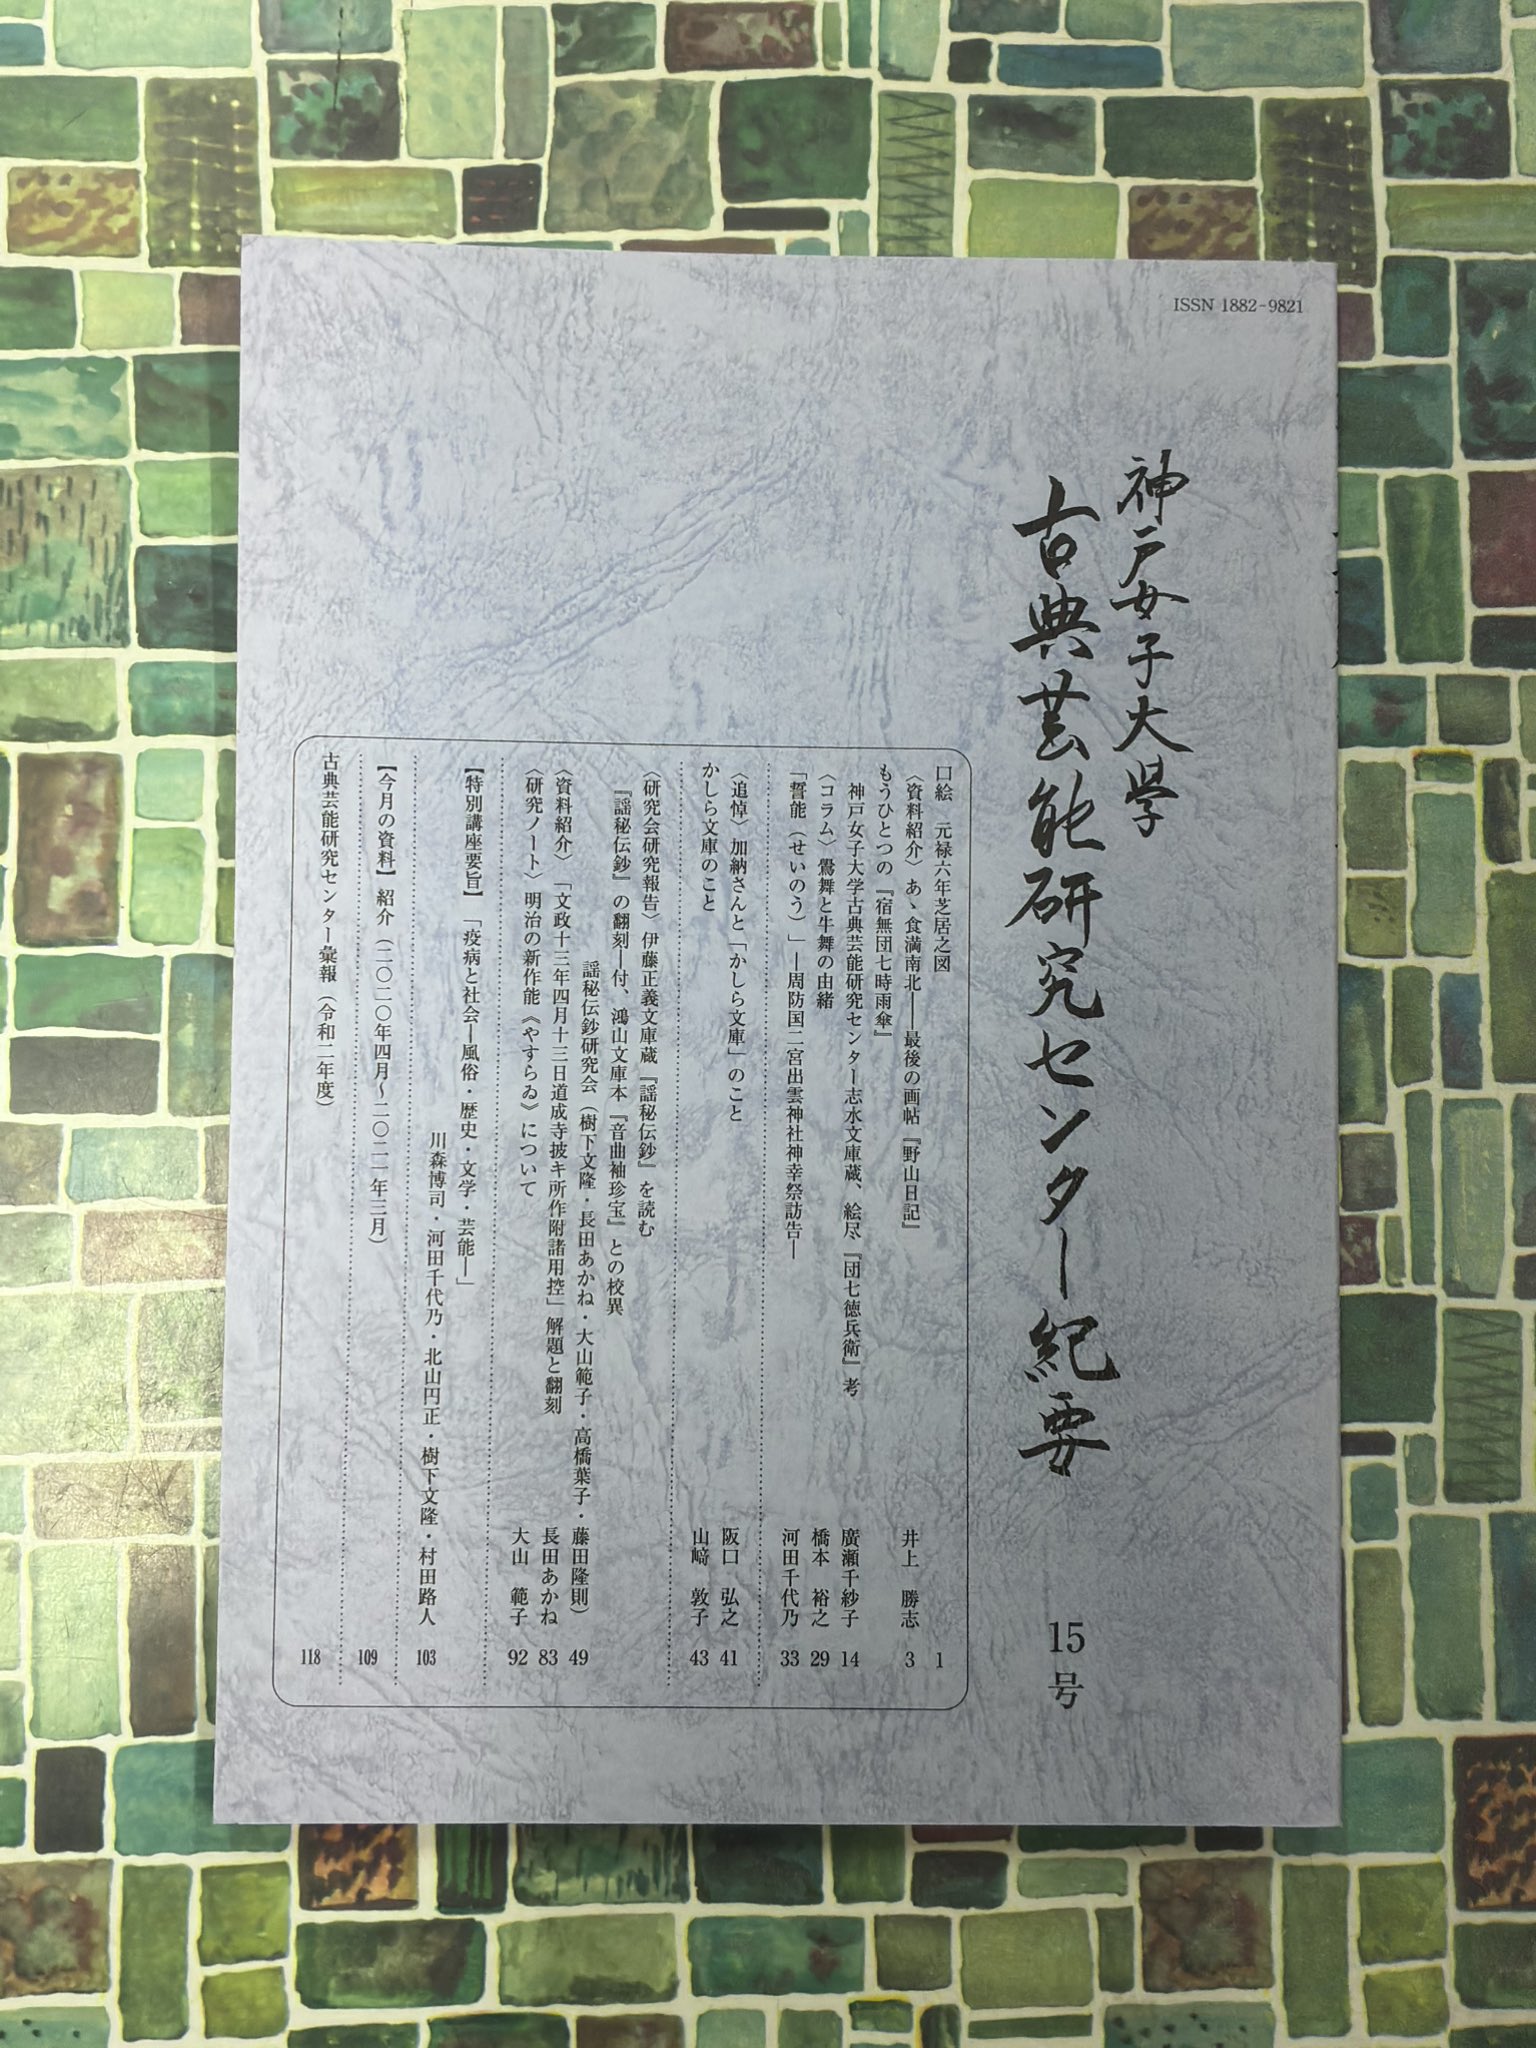 ISSN 1882-9821
神戸女子大學
古典芸能研究センター紀要
15号
口絵 元禄六年芝居之図 1
〈資料紹介〉あゝ食満南北――最後の画帖『野山日記』 井上 勝志 3
もうひとつの『宿無団七時雨傘』
神戸女子大学古典芸能研究センター志水文庫蔵、絵尽『団七徳兵衛』考 廣瀬千紗子 14
〈コラム〉鷺舞と牛舞の由緒 橋本 裕之 29
「誓能(せいのう)」―周防国二宮出雲神社神幸祭訪告― 河田千代乃 33
〈追悼〉加納さんと「かしら文庫」のこと 阪口 弘之 41
かしら文庫のこと 山﨑 敦子 43
〈研究会研究報告〉伊藤正義文庫蔵『謡秘伝鈔』を読む
『謡秘伝鈔』の翻刻―付、鴻山文庫本『音曲袖珍宝』との校異
謡秘伝鈔研究会(樹下文隆・長田あかね・大山範子・高橋葉子・藤田隆則) 49
〈資料紹介〉「文政十三年四月十三日道成寺披キ所作附諸用控」解題と翻刻 長田あかね 83
〈研究ノート〉明治の新作能《やすらゐ》について 大山 範子 92
【特別講座要旨】「疫病と社会―風俗・歴史・文学・芸能―」
川森博司・河田千代乃・北山円正・樹下文隆・村田路人 103
【今月の資料】紹介(二〇二〇年四月〜二〇二一年三月) 109
古典芸能研究センター彙報(令和二年度) 118